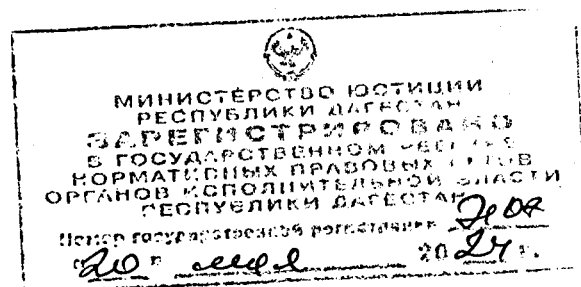 МИНИСТЕРСТВО ЮСТИЦИИ
РЕСПУБЛИКИ ДАГЕСТАН
ЗАРЕГИСТРИРОВАНО
В ГОСУДАРСТВЕННОМ РЕЕСТРЕ
НОРМАТИВНЫХ ПРАВОВЫХ АКТОВ
ОРГАНОВ ИСПОЛНИТЕЛЬНОЙ ВЛАСТИ
РЕСПУБЛИКИ ДАГЕСТАН
Номер государственной регистрации
«20» мая 2024 г.